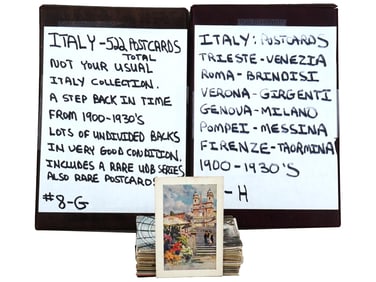 ITALY-522 POSTCARDS
TOTAL
NOT YOUR USUAL
ITALY COLLECTION.
A STEP BACK IN TIME
FROM 1900-1930'S
LOTS OF UNDIVIDED BACKS
IN VERY GOOD CONDITION.
INCLUDES A RARE UDB SERIES
ALSO RARE POSTCARDS
#8-G
ITALY: POSTCARDS
TRIESTE-VENEZIA
ROMA-BRINDISI
VERONA-GIRGENTI
GENOVA-MILANO
POMPEI-MESSINA
FIRENZE-TAORMINA
1900-1930'S
-H